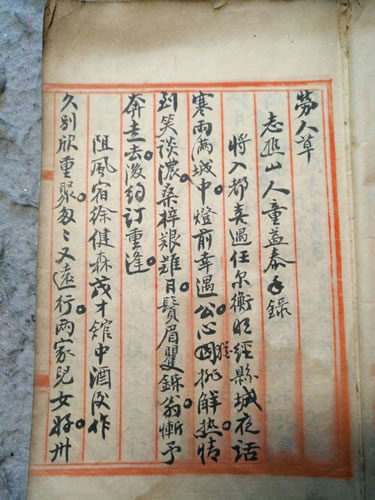 劳人草
志近山人童益泰手錄
將入都奏遇任尔衡明經縣城夜話
寒雨滿城中燈前幸遇公心因挑解熱情
到笑談濃桑梓艱難日鬢眉矍鑠翁慚予
奔走去後約訂重逢
阻風宿徐健森茂才館中酒後作
久別欣重聚匆々又遠行兩家兒女好卅